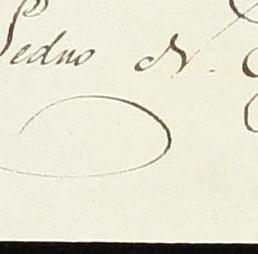 Pedro N.